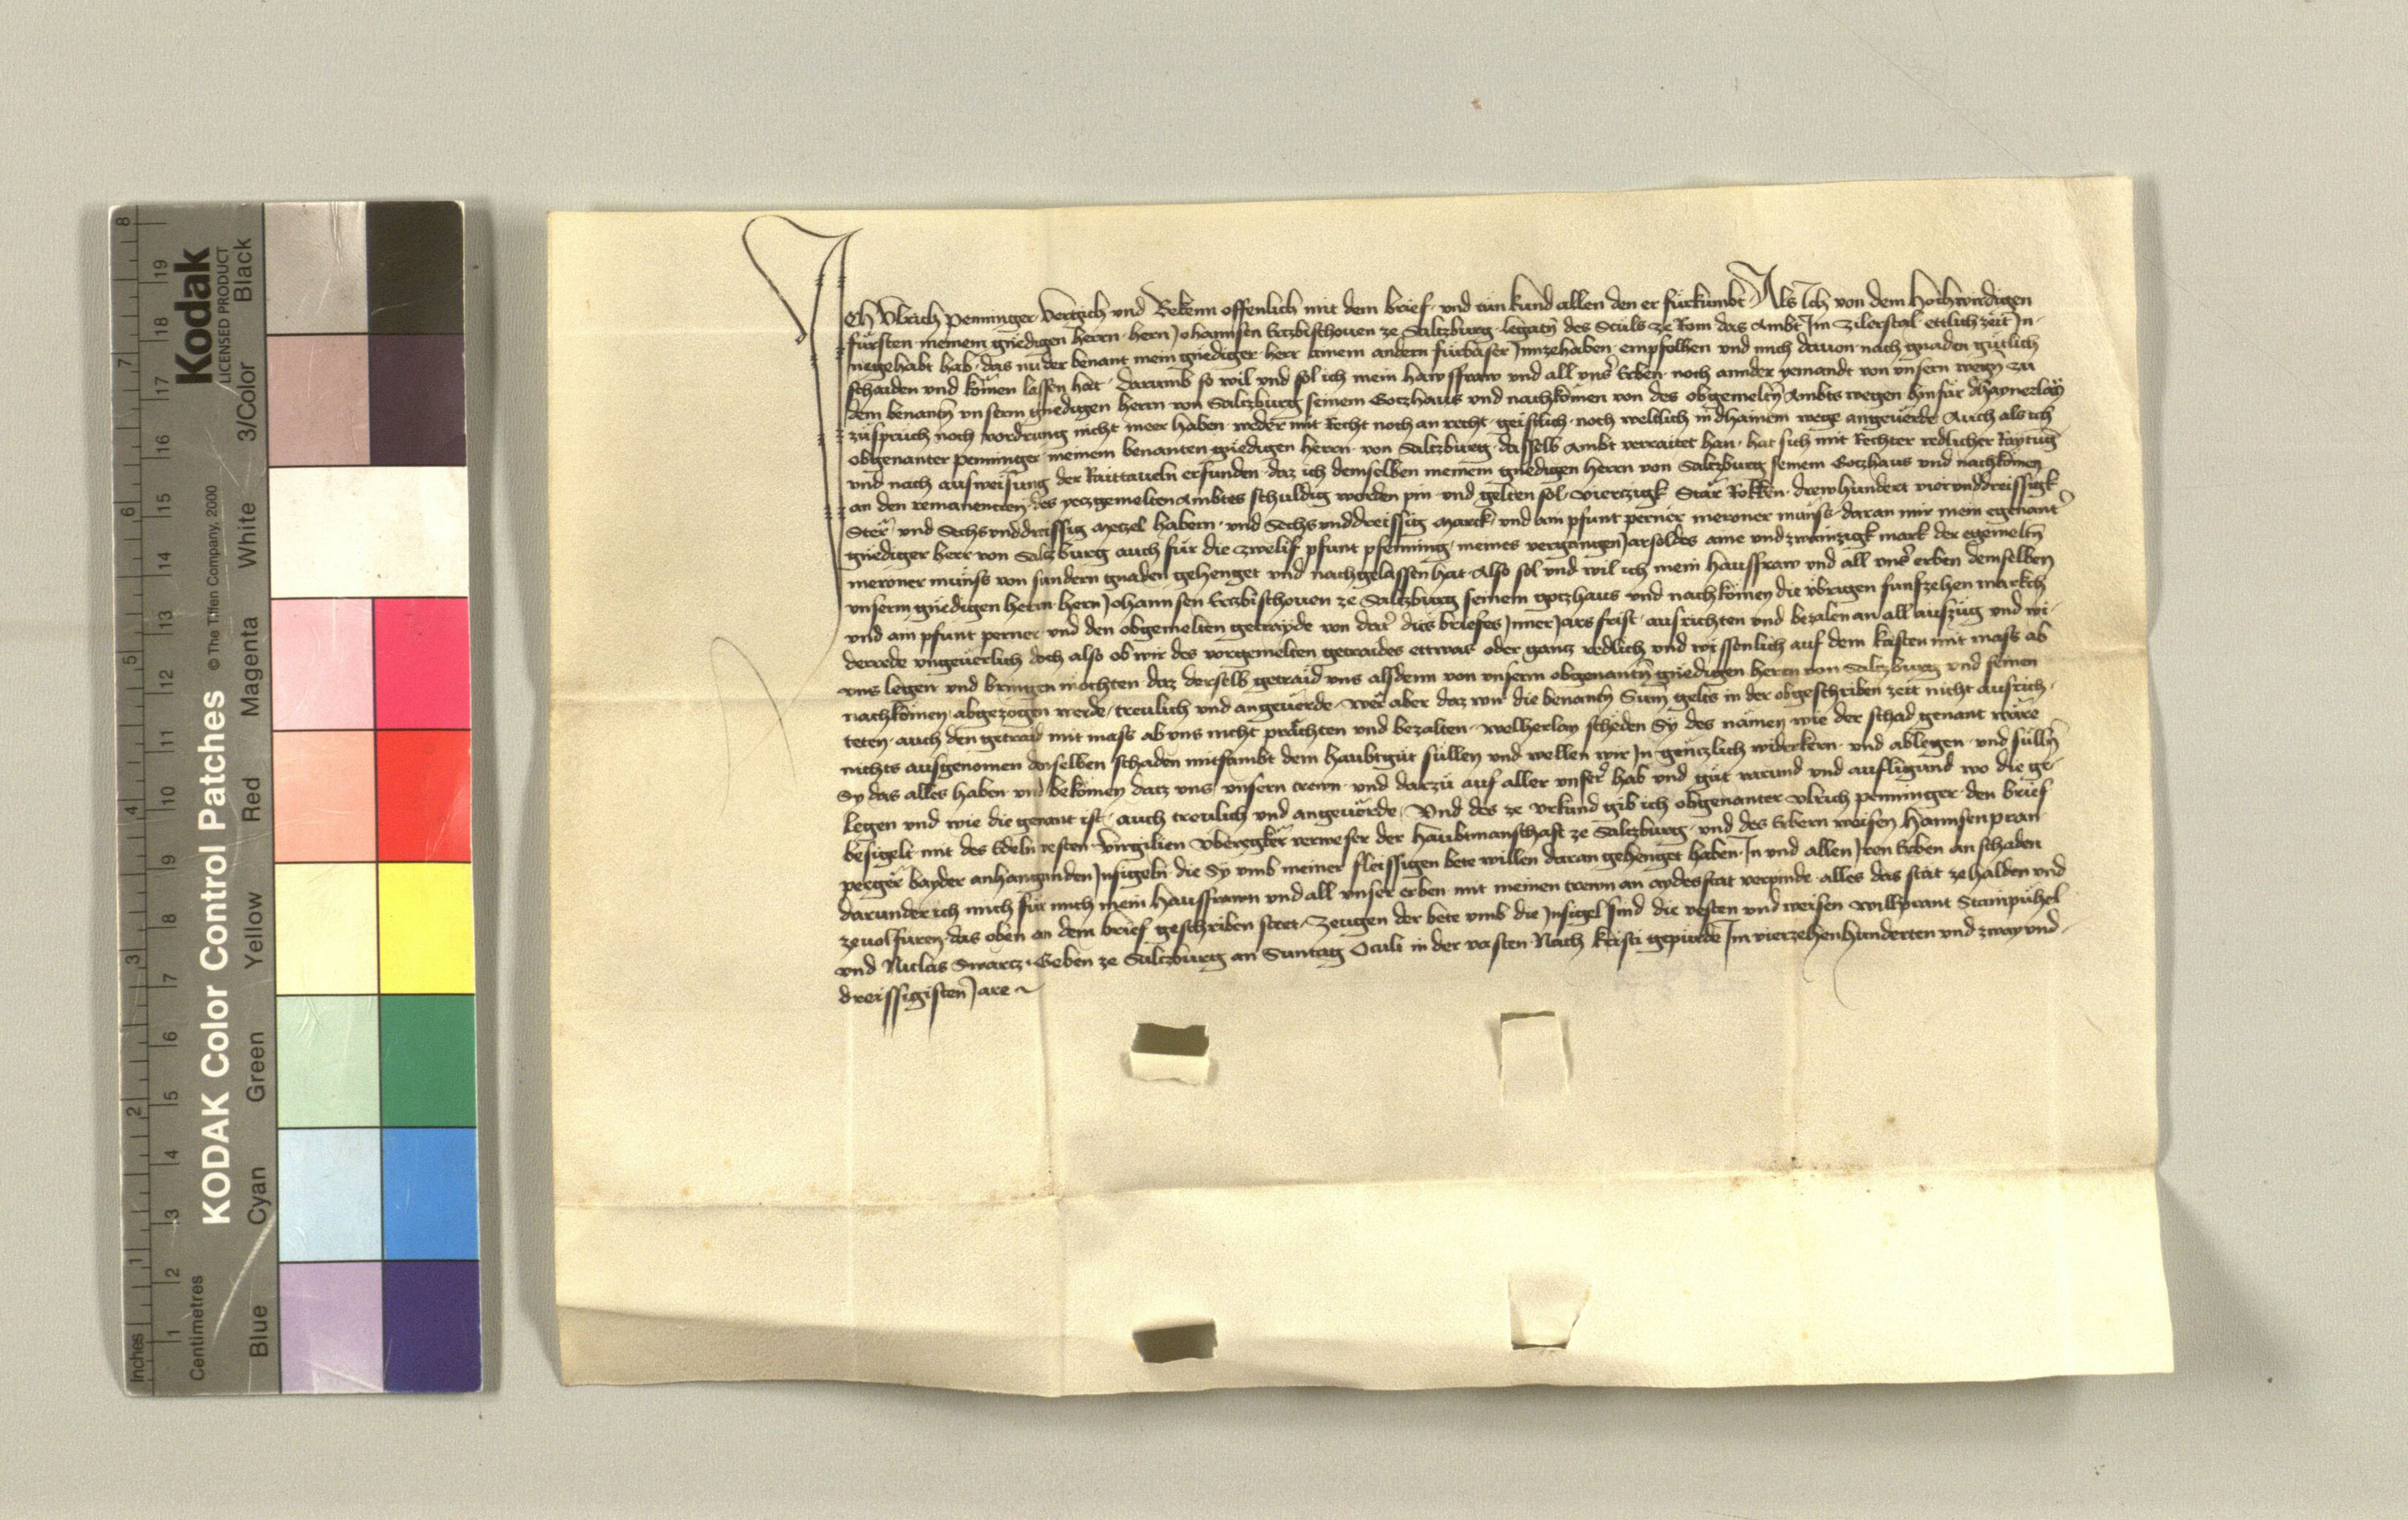 KODAK Color Control Patches © The Tiffen Company, 2000
Kodak
LICENSED PRODUCT
Inches 1 2 3 4 5 6 7 8
Centimetres 1 2 3 4 5 6 7 8 9 10 11 12 13 14 15 16 17 18 19
Blue Cyan Green Yellow Red Magenta White 3/Color Black
Ich Vlrich Penninger vergich und Bekenn offenlich mit dem brief · vnd tun kund allen den er fürkumbt Als Ich von dem Hochwirdigen
fürsten meinem gnedigen herrn · hern Johannsen Ertzbischouen ze Saltzburg · legatn des Stuls ze Rom das Ambt Im Zilerstal · ettlich zeit In-
negehabt hab · das nu der benant mein gnediger herr ainem andern fürbaser Innzehaben · empfolhen und mich dauon nach gnaden gütlich
schaiden und komen lassen hat · Darumb so wil vnd sol ich mein hawsfraw vnd all vnser Erben · noch annder yemandt von vnsern wegn zu
dem benantn vnserm gnedigen herrn von Saltzburg seinem Gotzhaus vnd nachkomen von des obgemeltn Ambts wegen hinfür dhaynerlay
zuspruch noch vordrung nicht meer haben weder mit Recht noch an recht · geistlich noch weltlich in dhainem wege angeuerde Auch als ich
obgenanter Penninger meinem benanten gnedigen herrn von Saltzburg · dasselb Ambt verraitet han · hat sich mit Rechter redlicher Raytung
vnd nach ausweisung der Raittaueln erfunden · daz ich demselben meinem gnedigen herrn von Saltzburg seinem Gotzhaus vnd nachkomen
an den remanentzen des yetzgemelten Ambtes schuldig worden pin · vnd gelten sol · viertzigk Stär Rokken · drewhundert viervnddreissigk
Stär vnd Sechsvnddreissig metzel habern · vnd Sechsvnddreissig marck · vnd ain pfunt perner meroner münss · daran mir mein egenant
gnediger herr von Saltzburg auch für die zwelif pfunt pfenning · meines vergangen Jarsoldes aine vnd zwainzigk mark der egemeltn
meroner münss von sundern gnaden gehenget vnd nachgelassen hat · Also sol vnd wil ich mein hausfraw vnd all vnser erben demselben
vnserm gnedigen herrn hern Johannsen Ertzbischouen ze Saltzburg seinem gotzhaus vnd nachkomen die übrigen funfzehen markch
vnd ain pfunt perner vnd den obgemelten getrayde von dat dits briefes Inner Jars frist · ausrichten vnd bezalen an all auszug vnd wi-
derrede vngeuerlich doch also ob wir des vorgemelten getraides ettwas oder gantz redlich vnd wissenlich auf dem kasten mit mass ab
vns legen vnd bringen mochten daz derselb getraid vns alsdenn von vnserm obgenantn gnedigen herrn von Saltzburg vnd seinen
nachkomen abgezogen werde · treulich vnd angeuerde · Wer aber daz wir die benantn Sum gelts in der obgeschriben zeit nicht ausrich-
teten · auch den getraid mit mass ab vns nicht prächten vnd bezalten · welherlay scheden Sy des namen wie der schad genant wäre
nichts ausgenomen denselben schaden mitsambt dem haubtgut süllen vnd wellen wir In gentzlich widerkern · vnd ablegen · vnd sülln
Sy das alles haben vnd bekomen datz vns vnsern trewn · vnd darzu auf aller vnser hab vnd gut varund vnd aufligund wo die ge-
legen vnd wie die genant ist · auch treulich vnd angeuerde Vnd des ze vrkund gib ich obgenanter Vlrich Penninger den brief
besigelt mit des Edeln vesten Virgilien Vberegker verweser der haubtmanschaft ze Saltzburg · vnd des Erbern weisen Hannsen pran-
perger bayder anhangunden Insigeln · die Sy vmb meiner fleissigen bete willen daran gehenget haben · In vnd allen Iren Erben an schaden
darunder ich mich für mich mein hausfrawn vnd all vnser erben · mit meinen trewn an aydesstat verpinde · alles das stät ze halden vnd
zeuolfuren · das oben an dem brief geschriben stet · Zeugen der bete vmb die Insigel sind die vesten vnd weisen Willprant Stainpühel
vnd Niclas Swartz · Geben ze Saltzburg an Suntag Oculi in der vasten · Nach kristi gepurde Im vierzehenhunderten vnd zway vnd-
dreissigisten Jare ~